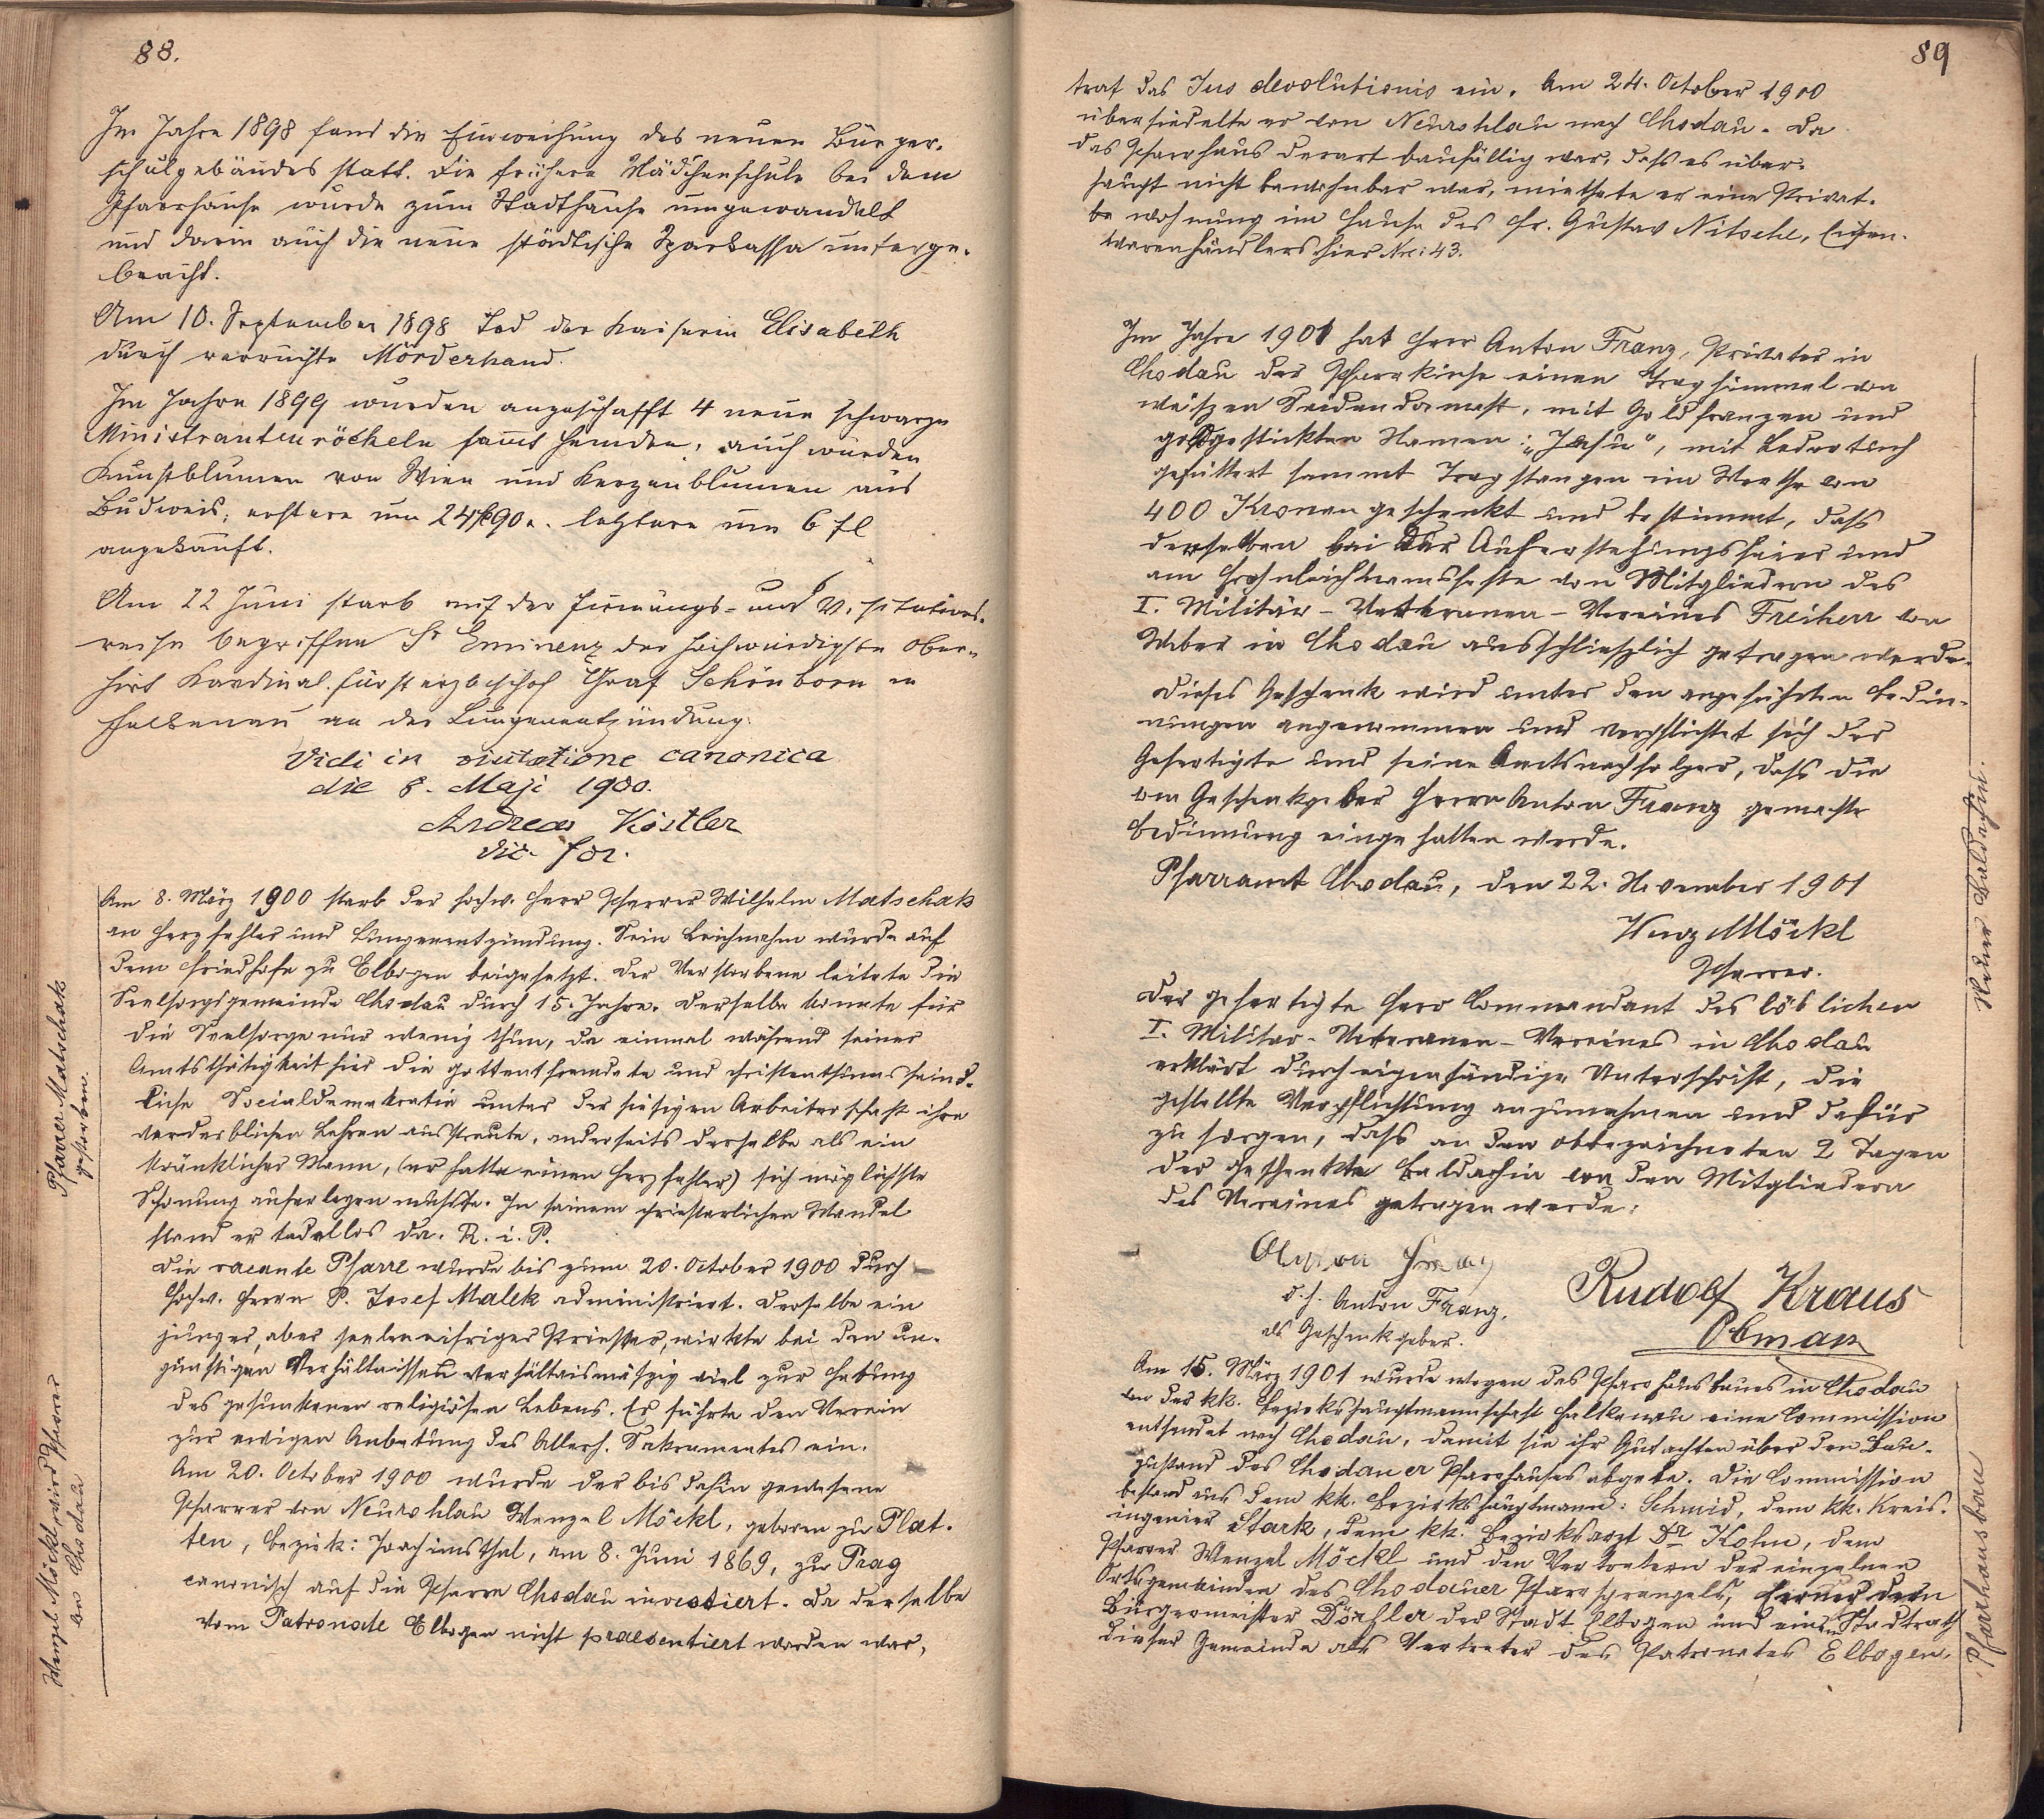 88.
Im Jahre 1898 fand die Einweihung des neuen Bürger-
schulgebäudes statt. Die frühere Mädchenschule bei dem
Pfarrhause wurde zum Stadthause umgewandelt
und darin auch die neue städtische Sparkassa unterge-
bracht.
Am 10. September 1898 Tod der Kaiserin Elisabeth
durch verruchte Mörderhand.
Im Jahre 1899 wurden angeschafft 4 neue schwarze
Ministrantenröckeln samt Hemden; auch wurden
Kunstblumen von Wien und Kerzenblumen aus
Budweis; erstere um 24 fl 90 x. letztere um 6 fl
angekauft.
Am 22 Juni starb auf der Firmungs- und Visitations-
reise begriffen Sr Eminenz der hochwürdigste Ober-
hirt Kardinal-fürsterzbischof Graf Schönborn in
Falkenau an der Lungenentzündung.
Vidi in visitatione canonica
die 8. Maji 1900.
Andreas Köstler
vic. for.
Am 8. März 1900 starb der hochw. Herr Pfarrer Wilhelm Matschak
an Herzfehler und Lungenentzündung. Sein Leichnahm wurde auf
dem Friedhofe zu Elbogen beigesetzt. Der Verstorbene leitete die
Seelsorgsgemeinde Chodau durch 15. Jahre. Derselbe konnte für
die Seelsorge nur wenig thun, da einmal während seiner
Amtsthätigkeit hier die gottentfremdete und christenthumsfeind-
liche Socialdemokratie unter der hiesigen Arbeiterschaft ihre
verderblichen Lehren ausstreute, anderseits derselbe als ein
kränklicher Mann, (er hatte einen Herzfehler) sich möglichste
Schonung auferlegen mußte. In seinem priesterlichen Wandel
stand er tadellos da. R. i. P.
Die vacante Pfarre wurde bis zum 20. October 1900 durch
hochw. Herrn P. Josef Malek administriert. Derselbe ein
junger, aber seeleneifriger Priester, wirkte bei den un-
günstigen Verhältnissen verhältnismäßig viel zur Hebung
des gesunkenen religiösen Lebens. Er führte den Verein
zur ewigen Anbetung des Allerh. Sakramentes ein.
Am 20. October 1900 wurde der bis dahin gewesene
Pfarrer von Neurohlau Wenzel Möckl, geboren zu Plat-
ten, Bezirk: Joachimsthal, am 8. Juni 1869, zu Prag
canonisch auf die Pfarre Chodau investiert. Da derselbe
vom Patronate Elbogen nicht praesentiert worden war,
Pfarrer Matschak
gestorben.
Wenzel Möckl wird Pfarrer
in Chodau
89
trat das Jus devolutionis ein. Am 24. October 1900
übersiedelte er von Neurohlau nach Chodau. Da
das Pfarrhaus derart baufällig war, daß es über-
haupt nicht bewohnbar war, miethete er eine Privat-
be wohnung im Hause des Hr. Gustav Nitsche, Eisen-
warenhändlers hier Nro: 43.
Im Jahre 1901 hat Herr Anton Franz, Privater in
Chodau der Pfarrkirche einen Traghimmel von
weißen Seidendamast, mit Goldfranzen und
goldgestickten Namen: „Jesu“, mit Ledertuch
gefüttert sammt Tragstangen im Werthe von
400 Kronen geschenkt und bestimmt, daß
derselben bei der Auferstehungsfeier und
am Frohnleichnamsfeste von Mitgliedern des
I. Militär-Veteranen-Vereines Freiherr von
Weber in Chodau ausschließlich getragen werde.
Dieses Geschenk wird unter den angeführten Bedin-
nungen angenommen und verpflichtet sich der
Gefertigte und seine Amtsnachfolger, daß die
vom Geschenkgeber Herrn Anton Franz gemachte
Bedinnung eingehalten werde.
Pfarramt Chodau, den 22. November 1901
Wenz Möckl
Pfarrer.
Der gefertigte Herr Commandant des löblichen
I. Militär-Veteranen-Vereines in Chodau
erklärt durch eigenhändige Unterschrift, die
gestellte Verpflichtung anzunehmen und dafür
zu sorgen, daß an den obbezeichneten 2 Tagen
der geschenkte Baldachin von den Mitgliedern
des Vereines getragen werde:
Anton Franz
d. h. Anton Franz,
als Geschenkgeber.
Rudolf Kraus
Obman
Am 15. März 1901 wurde wegen des Pfarrhausbaues in Chodau
von der kk. Bezirkshauptmannschaft Falkenau eine Commission
entsendet nach Chodau, damit sie ihr Gutachten über den Bau-
zustand des Chodauer Pfarrhauses abgebe. Die Commission
bestand aus dem kk. Bezirkshauptmann: Schmid, dem kk. Kreis-
ingenier Stark, dem kk. Bezirksarzt Dr Kohn, dem
Pfarrer Wenzel Möckl und den Vertretern der einzelnen
Ortsgemeinden des Chodauer Pfarrsprengels, ferner dem
Bürgermeister Dörfler der Stadt Elbogen und einem Stadtrath
dieser Gemeinde als Vertreter des Patronates Elbogen.
Neuer Baldachin.
Pfarrhausbau